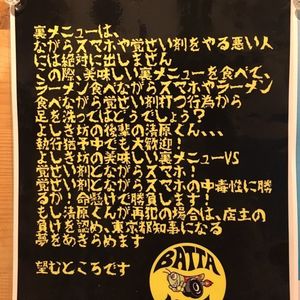 裏メニューは、
ながらスマホや覚せい剤をやる悪い人
には絶対に出しません
この際、美味しい裏メニューを食べて、
ラーメン食べながらスマホやラーメン
食べながら覚せい剤打つ行為から
足を洗ってはどうでしょう？
よしき坊の後輩の清原くん､､､
執行猶予中でも大歓迎！
よしき坊の美味しい裏メニューVS
覚せい剤とながらスマホ！
覚せい剤とながらスマホの中毒性に勝
るか！命懸けで勝負します！
もし清原くんが再犯の場合は、店主の
負けを認め、東京都知事になる
夢をあきらめます
望むところです
BATTA